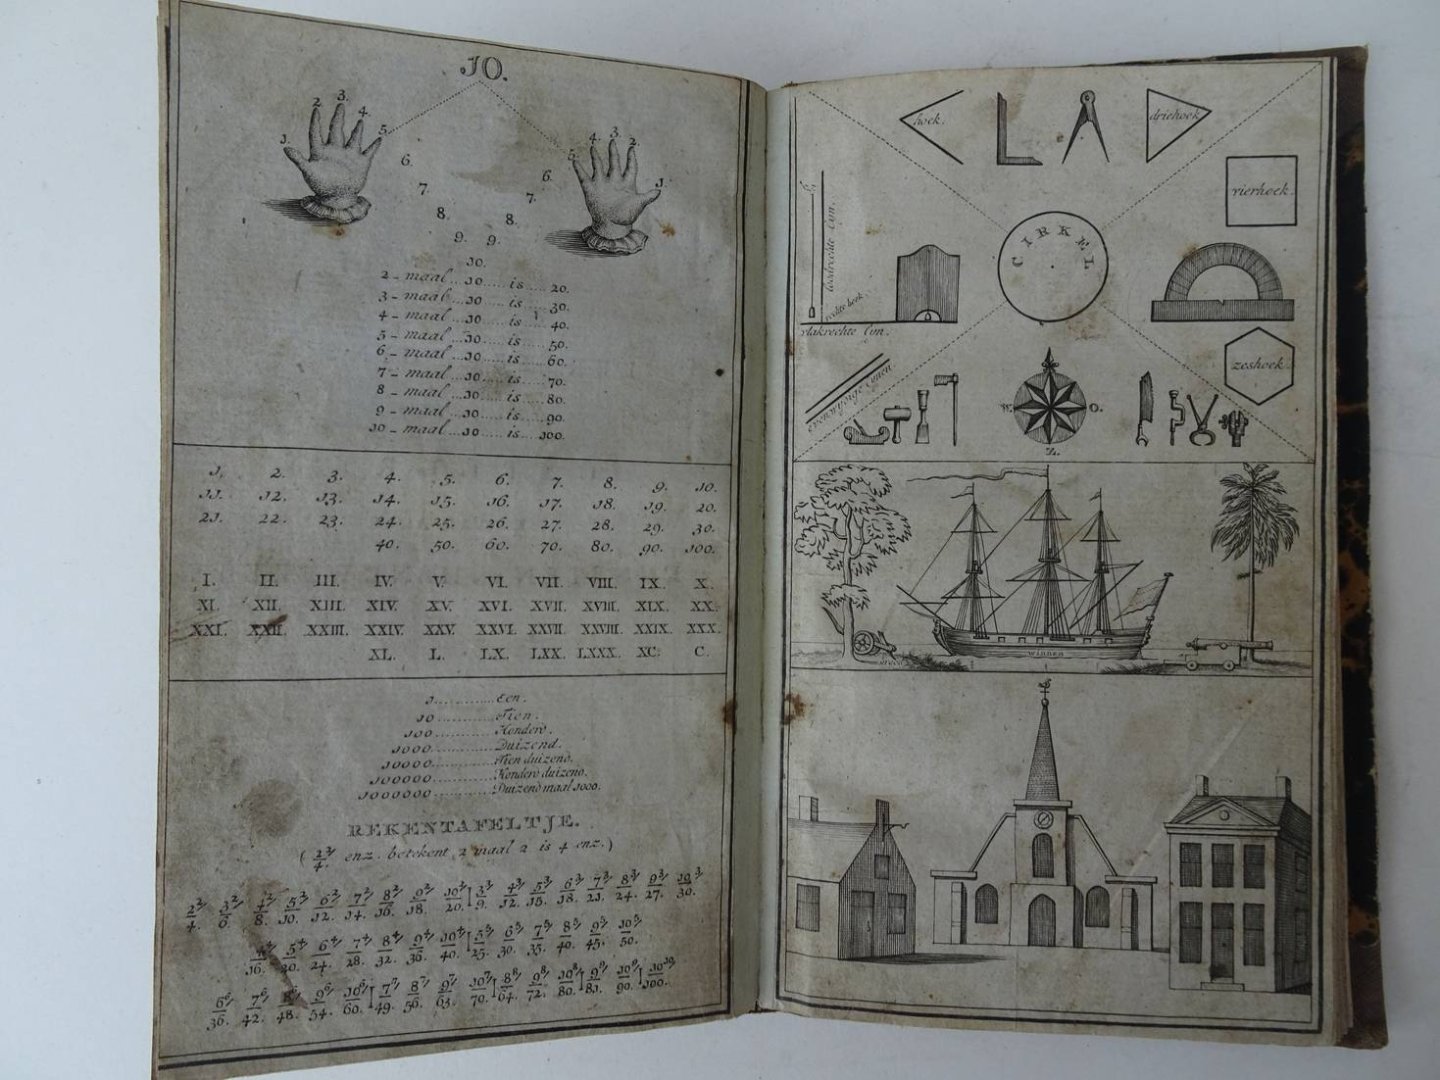 10.
1. 2. 3. 4. 5.
5. 4. 3. 2. 1.
6. 6.
7. 7.
8. 8.
9. 9.
10.
2 - maal ... 10 ..... is ..... 20.
3 - maal ... 10 ..... is ..... 30.
4 - maal ... 10 ..... is ..... 40.
5 - maal ... 10 ..... is ..... 50.
6 - maal ... 10 ..... is ..... 60.
7 - maal ... 10 ..... is ..... 70.
8 - maal ... 10 ..... is ..... 80.
9 - maal ... 10 ..... is ..... 90.
10 - maal ... 10 ..... is ..... 100.
1. 2. 3. 4. 5. 6. 7. 8. 9. 10.
11. 12. 13. 14. 15. 16. 17. 18. 19. 20.
21. 22. 23. 24. 25. 26. 27. 28. 29. 30.
40. 50. 60. 70. 80. 90. 100.
I. II. III. IV. V. VI. VII. VIII. IX. X.
XI. XII. XIII. XIV. XV. XVI. XVII. XVIII. XIX. XX.
XXI. XXII. XXIII. XXIV. XXV. XXVI. XXVII. XXVIII. XXIX. XXX.
XL. L. LX. LXX. LXXX. XC. C.
1 ............ Een.
10 ............ Tien.
100 ............ Honderd.
1000 ............ Duizend.
10000 ............ Tien duizend.
100000 ............ Honderd duizend.
1000000 ............ Duizend maal 1000.
REKENTAFELTJE.
( 2 2/4. enz. betekent 2 maal 2 is 4 enz. )
2 2/4. 3 2/6. 4 2/8. 5 2/10. 6 2/12. 7 2/14. 8 2/16. 9 2/18. 10 2/20. 3 3/9. 4 3/12. 5 3/15. 6 3/18. 7 3/21. 8 3/24. 9 3/27. 10 3/30.
4 4/16. 5 4/20. 6 4/24. 7 4/28. 8 4/32. 9 4/36. 10 4/40. 5 5/25. 6 5/30. 7 5/35. 8 5/40. 9 5/45. 10 5/50.
6 6/36. 7 6/42. 8 6/48. 9 6/54. 10 6/60. 7 7/49. 8 7/56. 9 7/63. 10 7/70. 8 8/64. 9 8/72. 10 8/80. 9 9/81. 10 9/90. 10 10/100.
hoek.
driehoek
vierhoek.
CIRKEL
loodrechte Lijn.
rechte hoek.
vlakrechte Lijn.
zeshoek.
evenwydige Linien
W.
O.
Z.